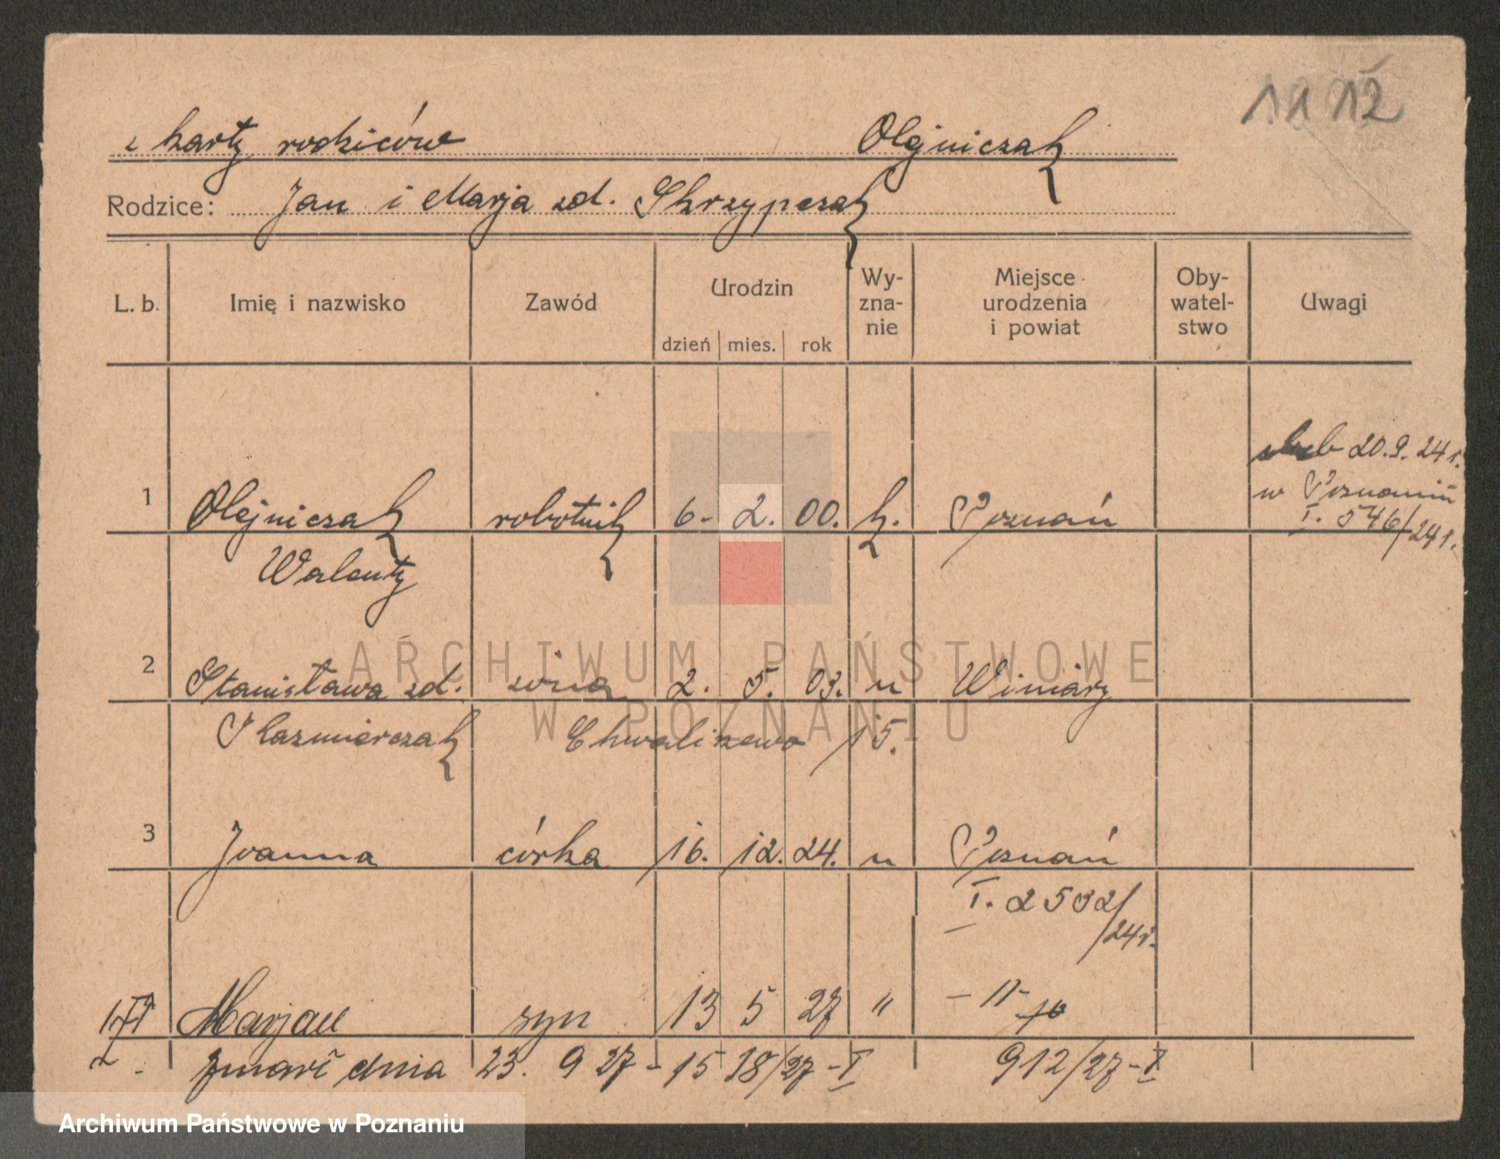 11 12
z karty rodziców Olejniczak
Rodzice: Jan i Marja zd. Skrzypczak
L. b. Imię i nazwisko Zawód Urodzin Wy- Miejsce Oby- Uwagi
zna- urodzenia watel-
dzień mies. rok nie i powiat stwo
ślub 20.9.24 r.
w Poznaniu
1 Olejniczak robotnik 6. 2. 00. k. Poznań I. 546/24 r.
Walenty
2 Stanisława zd. żona 2. 5. 03. n Winiary
Kazmierczak Chwaliszewo 15.
3 Joanna córka 16. 12. 24. n Poznań
I. 2532/24 r.
Marjan syn 13 5 27 " - " -
zmarł dnia 23. 9 27 - 1538/27 - I 912/27 - I
ARCHIWUM PAŃSTWOWE
W POZNANIU
Archiwum Państwowe w Poznaniu